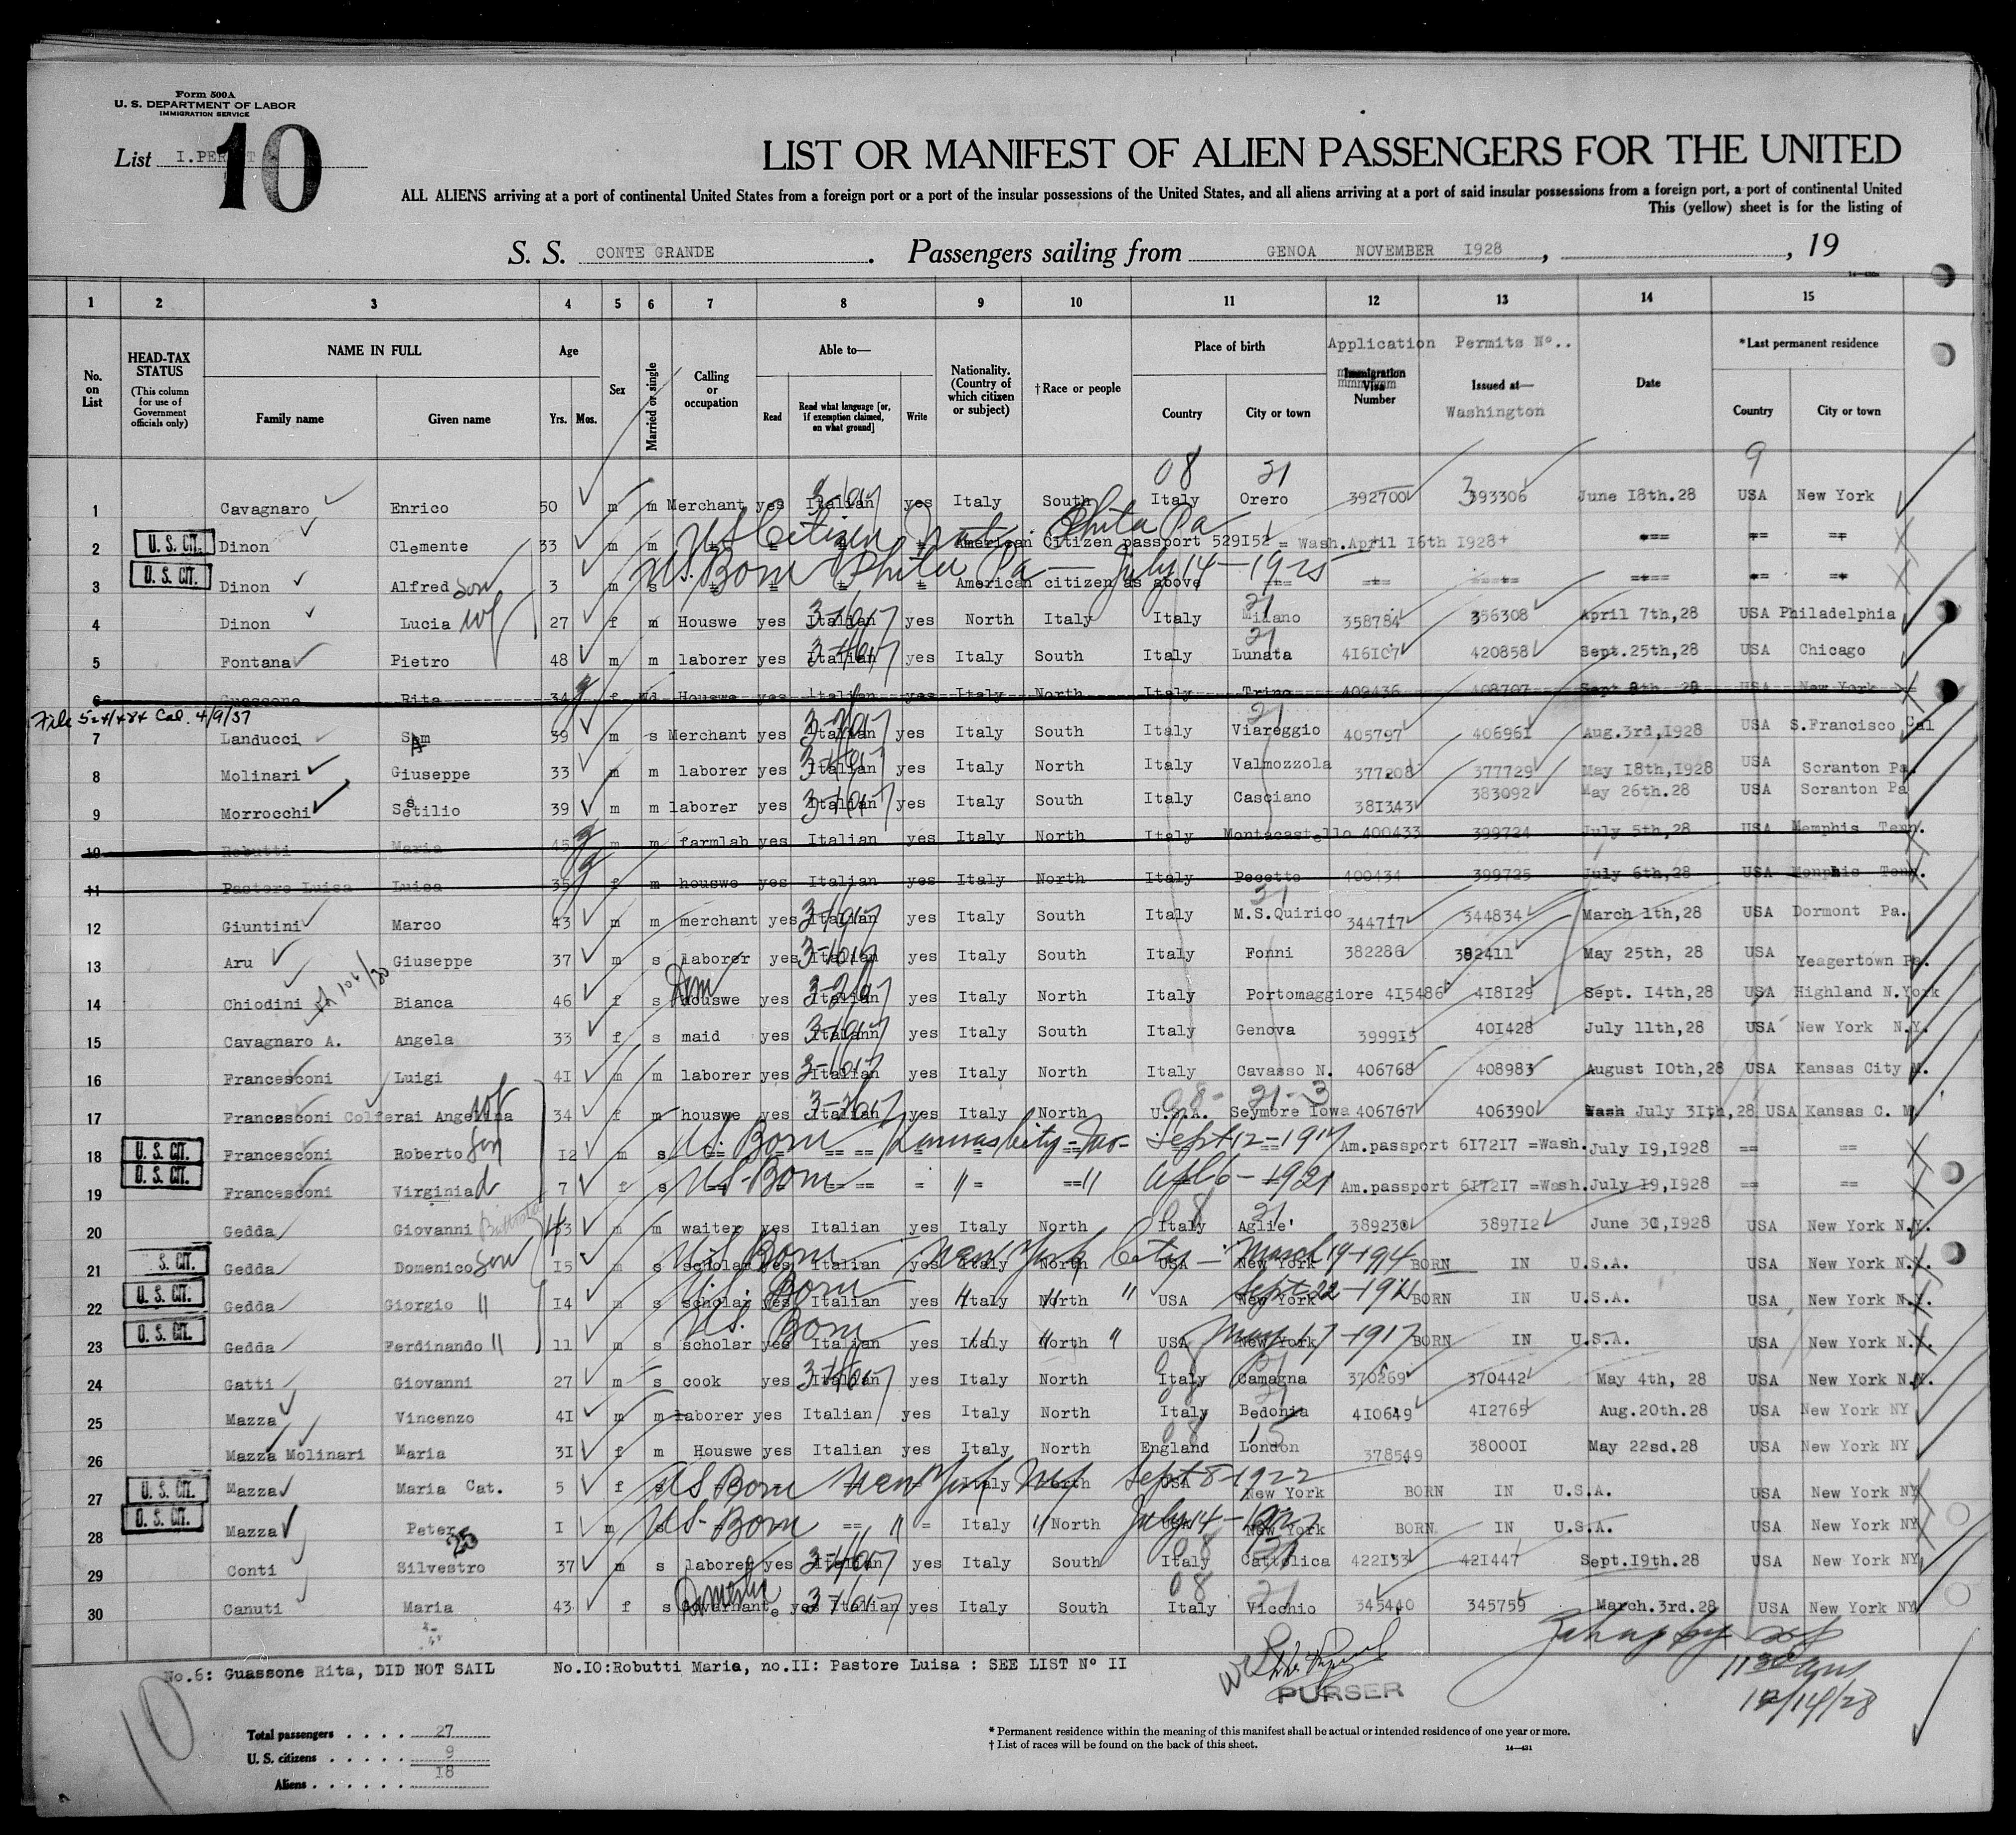 Form 500A
U. S. DEPARTMENT OF LABOR
IMMIGRATION SERVICE
List I.PER T
10
LIST OR MANIFEST OF ALIEN PASSENGERS FOR THE UNITED
ALL ALIENS arriving at a port of continental United States from a foreign port or a port of the insular possessions of the United States, and all aliens arriving at a port of said insular possessions from a foreign port, a port of continental United
This (yellow) sheet is for the listing of
S. S. CONTE GRANDE . Passengers sailing from GENOA NOVEMBER I928 , , 19
14—430a
1 2 3 4 5 6 7 8 9 10 11 12 13 14 15
No. on List
HEAD-TAX STATUS (This column for use of Government officials only)
NAME IN FULL Family name Given name
Age Yrs. Mos.
Sex
Married or single
Calling or occupation
Able to— Read Read what language [or, if exemption claimed, on what ground] Write
Nationality. (Country of which citizen or subject)
† Race or people
Place of birth Country City or town
Application Permits Nº..
Immigration Visa Number
Issued at— Washington
Date
* Last permanent residence Country City or town
08 21 9
1 Cavagnaro Enrico 50 m m Merchant yes Italian yes Italy South Italy Orero 392700 393306 June I8th.28 USA New York
US Citizen Nat. Phila Pa
2 U. S. CIT. Dinon Clemente 33 m m American Citizen passport 529I52 = Wash.April I6th I928
US. Born Phila Pa — July 14 — 1925
3 U. S. CIT. Dinon Alfred son 3 m s American citizen as above
4 Dinon Lucia wf 27 f m Houswe yes Italian yes North Italy Italy Milano 358784 356308 April 7th,28 USA Philadelphia
5 Fontana Pietro 48 m m laborer yes Italian yes Italy South Italy Lunata 4I6I07 420858 Sept.25th,28 USA Chicago
6 Guassone Rita 34 f Wd Houswe yes Italian yes Italy North Italy Trino 409436 408707 Sept 8th 28 USA New York
File 524/484 Cal. 4/9/37
7 Landucci Sam 39 m s Merchant yes Italian yes Italy South Italy Viareggio 405797 40696I Aug.3rd,I928 USA S.Francisco Cal
8 Molinari Giuseppe 33 m m laborer yes Italian yes Italy North Italy Valmozzola 377208 377729 May I8th,I928 USA Scranton Pa.
9 Morrocchi Setilio 39 m m laborer yes Italian yes Italy South Italy Casciano 38I343 383092 May 26th.28 USA Scranton Pa
10 Robutti Maria 45 m m farmlab yes Italian yes Italy North Italy Montacastello 400433 399724 July 5th,28 USA Memphis Tenn.
11 Pastore Luisa Luisa 35 f m houswe yes Italian yes Italy North Italy Pecetto 400434 399725 July 6th,28 USA Memphis Tenn.
12 Giuntini Marco 43 m m merchant yes Italian yes Italy South Italy M.S.Quirico 3447I7 344834 March lth,28 USA Dormont Pa.
13 Aru Giuseppe 37 m s laborer yes Italian yes Italy South Italy Fonni 382286 382411 May 25th, 28 USA Yeagertown Pa.
14 Chiodini Bianca 46 f s Dom houswe yes Italian yes Italy North Italy Portomaggiore 4I5486 4I8I29 Sept. I4th,28 USA Highland N.York
15 Cavagnaro A. Angela 33 f s maid yes Italann yes Italy South Italy Genova 3999I5 40I428 July llth,28 USA New York N.Y.
16 Francesconi Luigi 4I m m laborer yes Italian yes Italy North Italy Cavasso N. 406768 408983 August I0th,28 USA Kansas City M.
17 Francesconi Colferai Angelina wf 34 f m houswe yes Italian yes Italy North U.S.A. Seymore Iowa 406767 406390 Wash July 3Ith,28 USA Kansas C. M.
18 U. S. CIT. Francesconi Roberto son I2 m s US. Born Kansas City - Mo - Sept 12 - 1917 Am.passport 6I72I7 =Wash. July I9,I928 == ==
19 U. S. CIT. Francesconi Virginia d 7 f s US. Born " " - 1921 Am.passport 6I72I7 =Wash. July I9,I928 == ==
20 Gedda Giovanni 53 m m waiter yes Italian yes Italy North Italy Aglie' 389230 3897I2 June 30,I928 USA New York N.Y.
21 S. CIT. Gedda Domenico son I5 m s scholar yes Italian yes Italy North USA New York BORN IN U.S.A. USA New York N.Y.
US Born New York City - March 19 - 1914
22 U. S. CIT. Gedda Giorgio " I4 m s scholar yes Italian yes Italy North USA New York BORN IN U.S.A. USA New York N.Y.
US. Born " " " Sept 22
23 U. S. CIT. Gedda Ferdinando " 11 m s scholar yes Italian yes Italy North USA New York BORN IN U.S.A. USA New York N.Y.
US. Born " " " May 17 - 1917
24 Gatti Giovanni 27 m s cook yes Italian yes Italy North Italy Camagna 370269 370442 May 4th, 28 USA New York N.Y.
25 Mazza Vincenzo 4I m m laborer yes Italian yes Italy North Italy Bedonia 4I0649 4I2765 Aug.20th.28 USA New York NY
26 Mazza Molinari Maria 3I f m Houswe yes Italian yes Italy North England London 378549 38000I May 22sd.28 USA New York NY
27 U. S. CIT. Mazza Maria Cat. 5 f s Italy North USA New York BORN IN U.S.A. USA New York NY
US Born New York NY Sept 8 - 1922
28 U. S. CIT. Mazza Peter I m s Italy North USA New York BORN IN U.S.A. USA New York NY
US. Born " " July 14 - 1927
29 Conti Silvestro 37 m s laborer yes Italian yes Italy South Italy Cattolica 422I33 42I447 Sept.I9th.28 USA New York NY
30 Canuti Maria 43 f s Domestic Governante yes Italian yes Italy South Italy Vicchio 345440 345759 March.3rd.28 USA New York NY
No.6: Guassone Rita, DID NOT SAIL No.I0:Robutti Maria, no.II: Pastore Luisa : SEE LIST Nº II
PURSER
11 30 am
12/14/28
10
Total passengers . . . . 27
U. S. citizens . . . . . 9
Aliens . . . . . . I8
* Permanent residence within the meaning of this manifest shall be actual or intended residence of one year or more.
† List of races will be found on the back of this sheet.
14—431